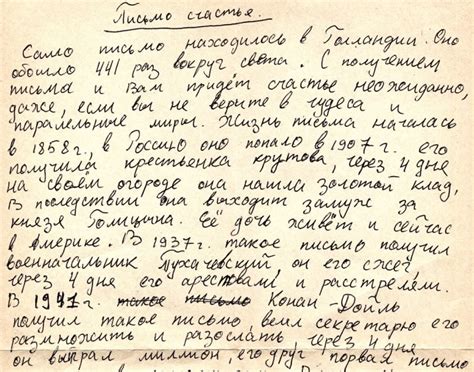 Письмо счастья.
Само письмо находилось в Голландии. Оно
обошло 441 раз вокруг света. С получением
письма и Вам придёт счастье неожиданно,
даже, если вы не верите в чудеса и
паралельные миры. Жизнь письма началась
в 1858 г., в Россию оно попало в 1907 г. его
получила крестьенка крутова, через 4 дня
на своём огороде она нашла золотой клад,
В последствии она выходит замуж за
князя Голицына. Её дочь живёт и сейчас
в Америке. В 1937 г. такое письмо получил
военначальник Тухачевский, он его сжег,
через 4 дня его арествали и расстреляли.
В 1941 г. такое письмо Конан-Дойль
получил такое письмо, велил секретарю его
размножить и разослать, через 4 дня
он выграл миллион, его друг порвал письмо